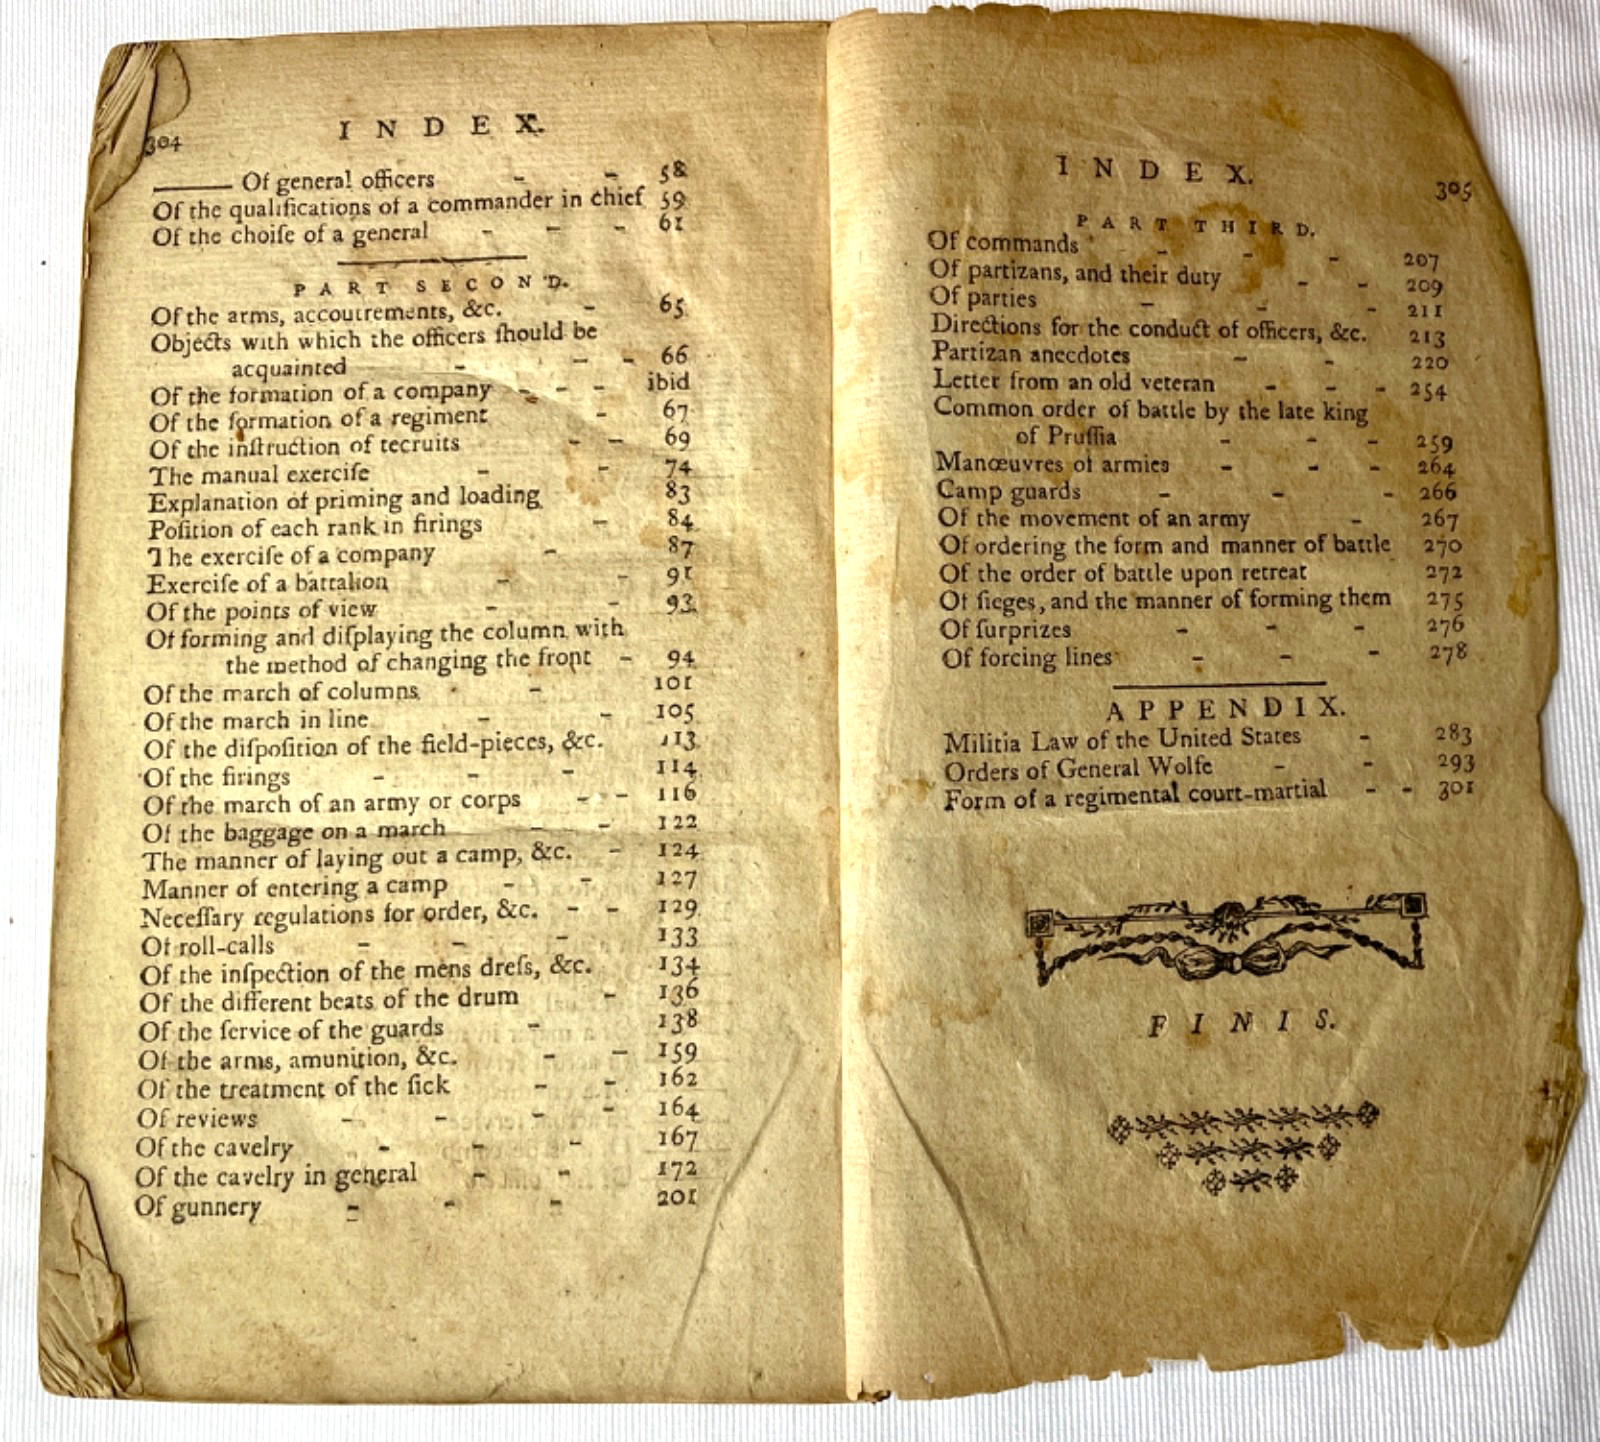 304 INDEX.
——— Of general officers - - 58
Of the qualifications of a commander in chief 59
Of the choiſe of a general - - - 61
PART SECOND.
Of the arms, accoutrements, &c. - 65
Objects with which the officers ſhould be
acquainted - - - 66
Of the formation of a company - - - ibid
Of the formation of a regiment - 67
Of the inſtruction of recruits - - 69
The manual exerciſe - - 74
Explanation of priming and loading 83
Poſition of each rank in firings - 84
The exerciſe of a company - 87
Exerciſe of a battalion - - 91
Of the points of view - - 93
Of forming and diſplaying the column with
the method of changing the front - 94
Of the march of columns - 101
Of the march in line - - 105
Of the diſpoſition of the field-pieces, &c. 113
Of the firings - - - 114
Of the march of an army or corps - - 116
Of the baggage on a march - - 122
The manner of laying out a camp, &c. - 124
Manner of entering a camp - - 127
Neceſſary regulations for order, &c. - - 129
Of roll-calls - - - 133
Of the inſpection of the mens dreſs, &c. 134
Of the different beats of the drum - 136
Of the ſervice of the guards - 138
Of the arms, amunition, &c. - - 159
Of the treatment of the ſick - - 162
Of reviews - - - - 164
Of the cavelry - - - 167
Of the cavelry in general - - 172
Of gunnery - - - 201
INDEX. 305
PART THIRD.
Of commands - - - 207
Of partizans, and their duty - - 209
Of parties - - - 211
Directions for the conduct of officers, &c. 213
Partizan anecdotes - - 220
Letter from an old veteran - - - 254
Common order of battle by the late king
of Pruſſia - - - 259
Manœuvres of armies - - - 264
Camp guards - - - 266
Of the movement of an army - 267
Of ordering the form and manner of battle 270
Of the order of battle upon retreat 272
Of ſieges, and the manner of forming them 275
Of ſurprizes - - - 276
Of forcing lines - - - 278
APPENDIX.
Militia Law of the United States - 283
Orders of General Wolfe - - 293
Form of a regimental court-martial - - 301
FINIS.